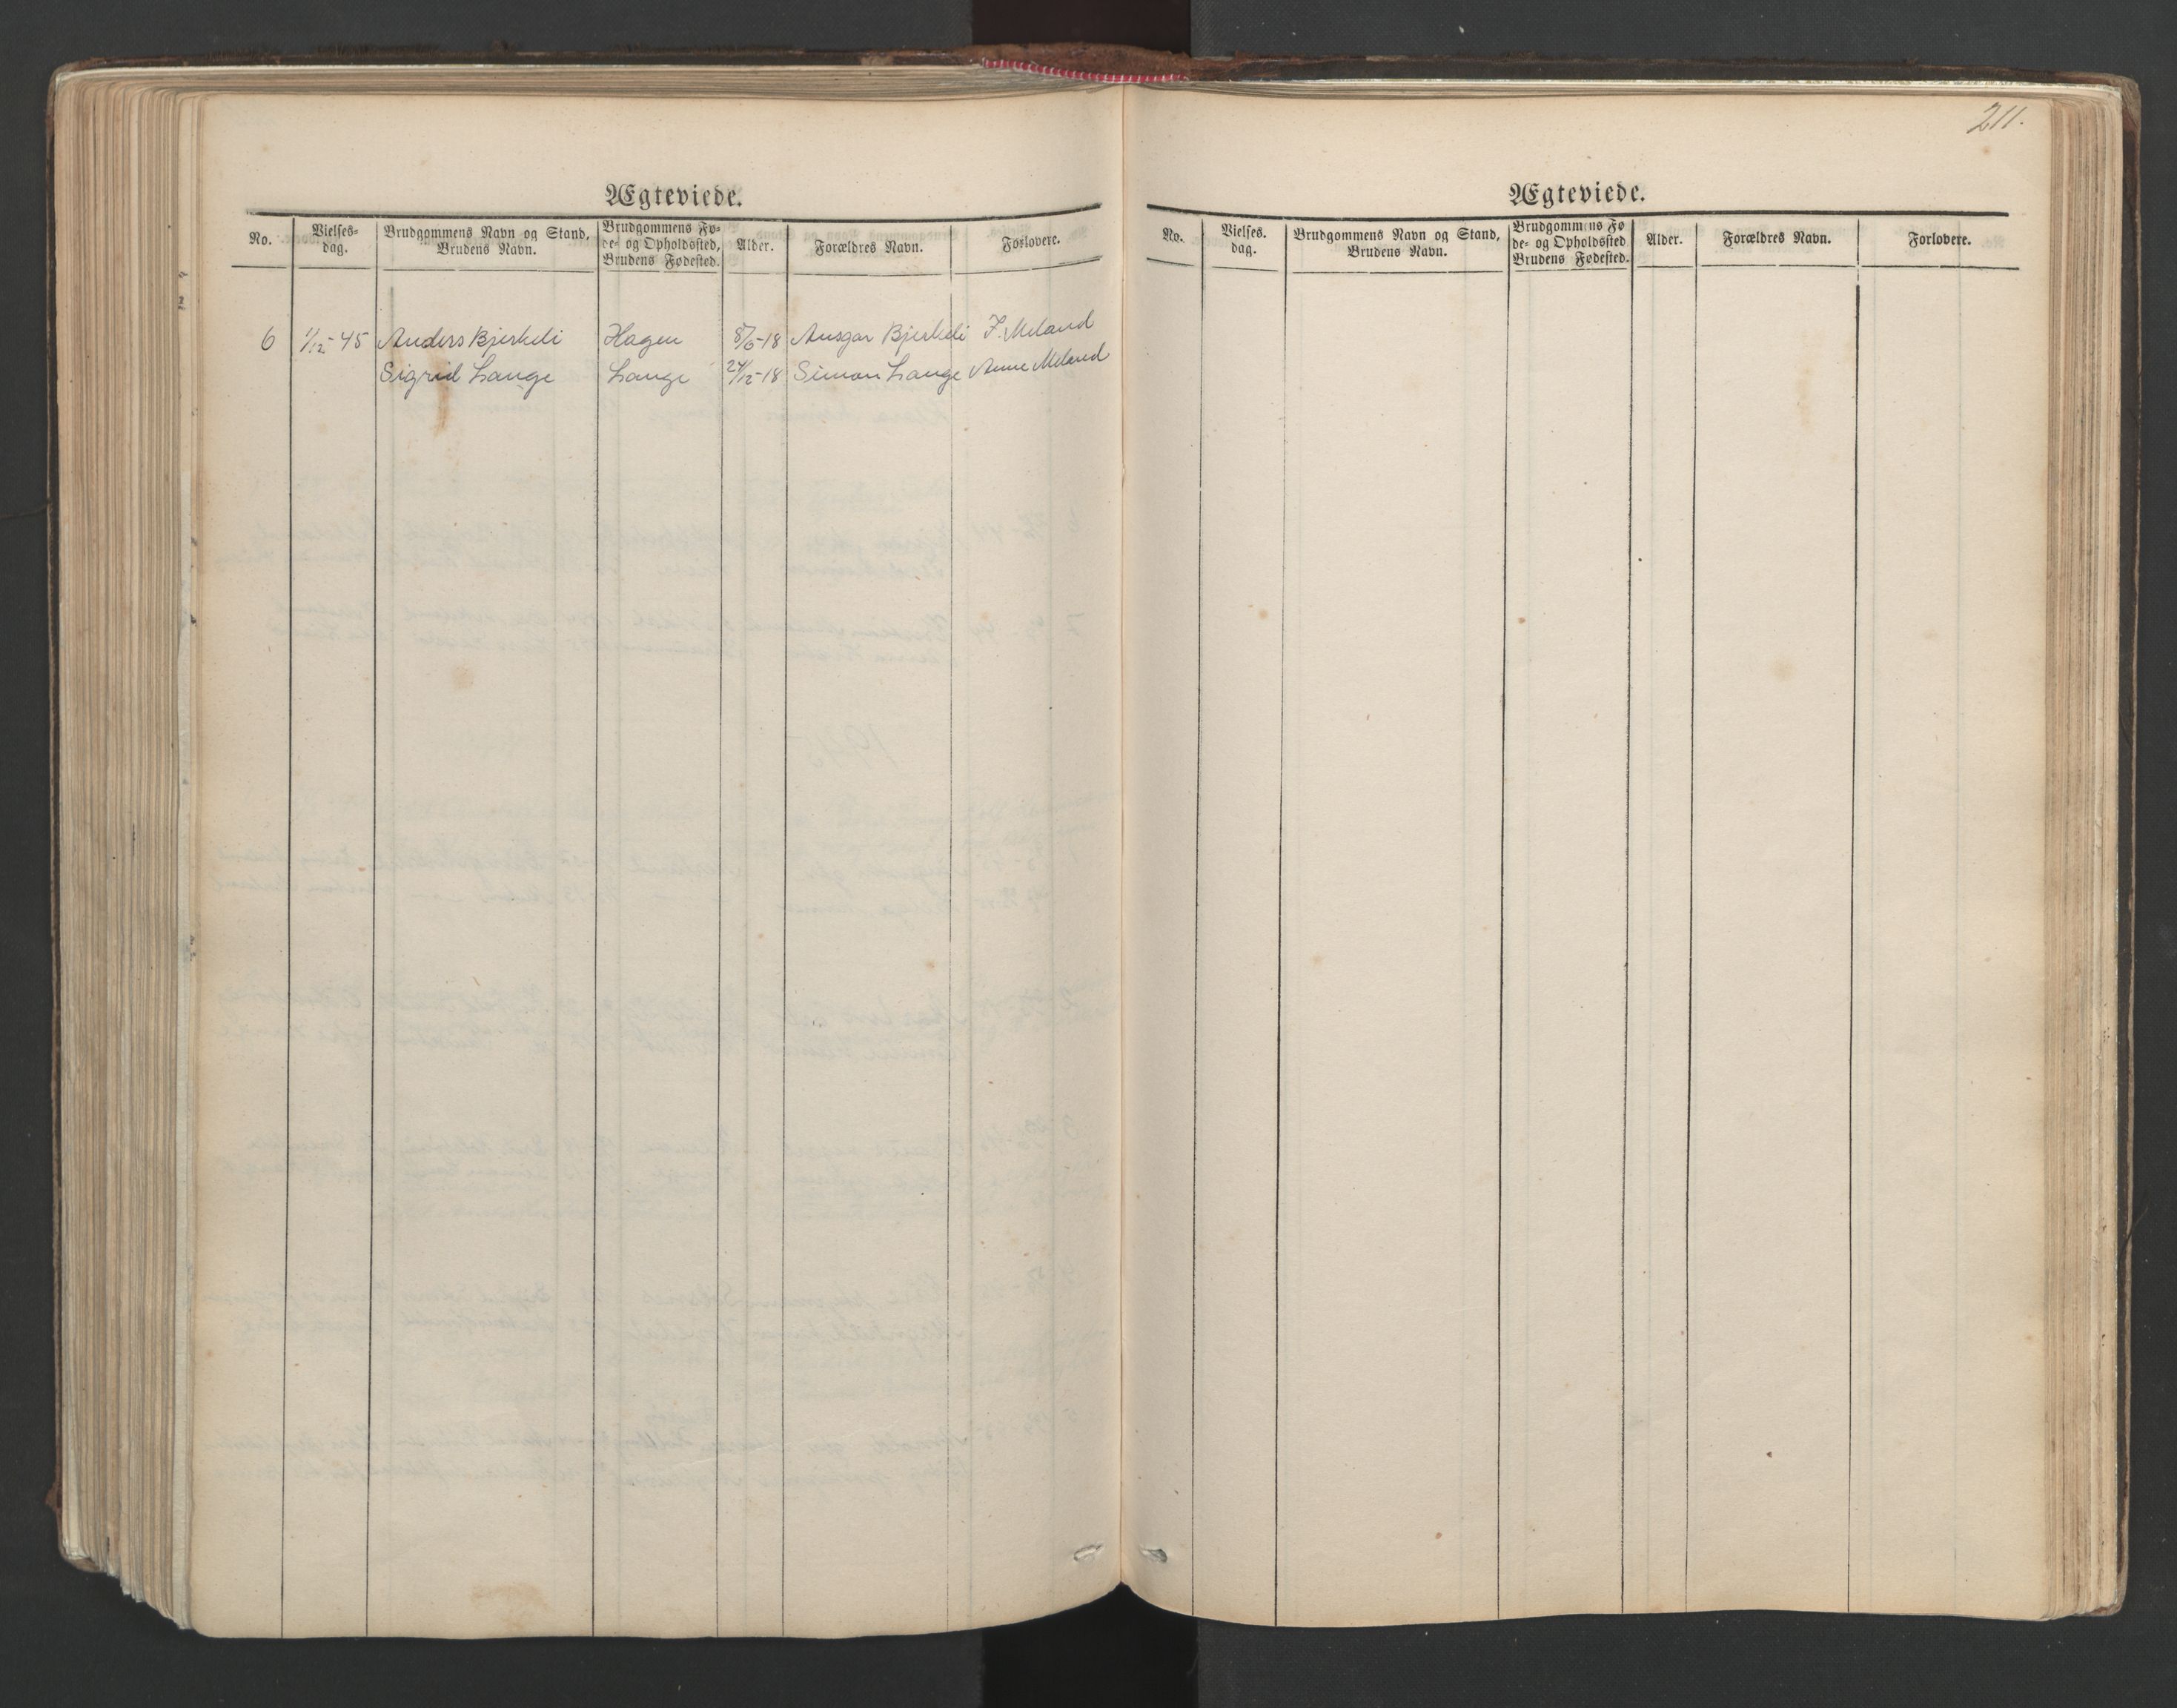 Ægteviede.
No.
Vielses-
dag.
Brudgommens Navn og Stand,
Brudens Navn.
Brudgommens Fø-
de- og Opholdssted,
Brudens Fødested.
Alder.
Forældres Navn.
Forlovere.
6 1/12-45 Anders Bjerkeli Hagen 8/6-18 Ansgar Bjerkeli J. Meland
Sigrid Lange Lange 24/12-18 Simon Lange Anne Meland
211.
Ægteviede.
No.
Vielses-
dag.
Brudgommens Navn og Stand,
Brudens Navn.
Brudgommens Fø
de- og Opholdssted
Brudens Fødested.
Alder.
Forældres Navn.
Forlovere.